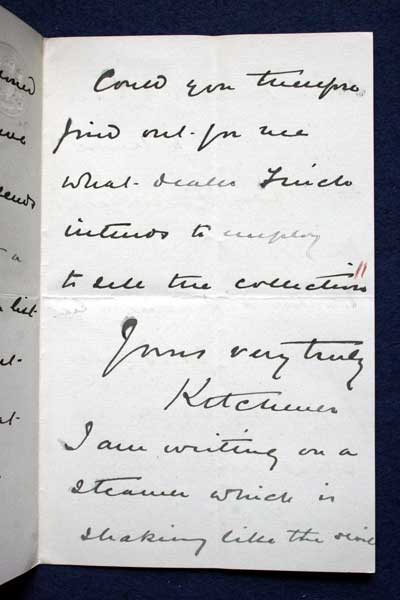 Could you therefore
find out for me
what dealer Finch
intends to employ
to sell the collection
Yours very truly
Kitchener
I am writing on a
steamer which is
shaking like the